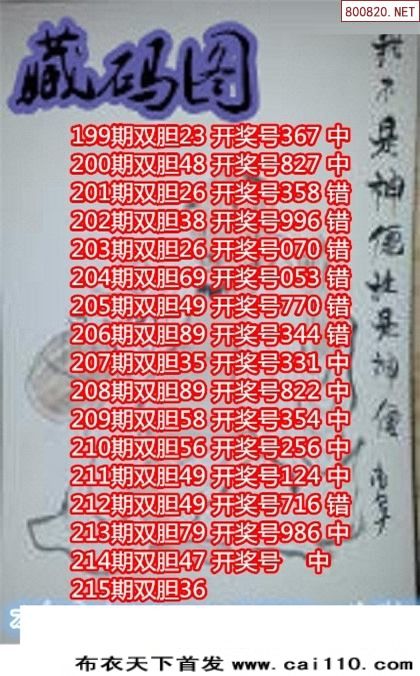 800820.NET
藏码图
我不是神但让是神傻
199期双胆23 开奖号367 中
200期双胆48 开奖号827 中
201期双胆26 开奖号358 错
202期双胆38 开奖号996 错
203期双胆26 开奖号070 错
204期双胆69 开奖号053 错
205期双胆49 开奖号770 错
206期双胆89 开奖号344 错
207期双胆35 开奖号331 中
208期双胆89 开奖号822 中
209期双胆58 开奖号354 中
210期双胆56 开奖号256 中
211期双胆49 开奖号124 中
212期双胆49 开奖号716 错
213期双胆79 开奖号986 中
214期双胆47 开奖号 中
215期双胆36
布衣天下首发 www.cai110.com